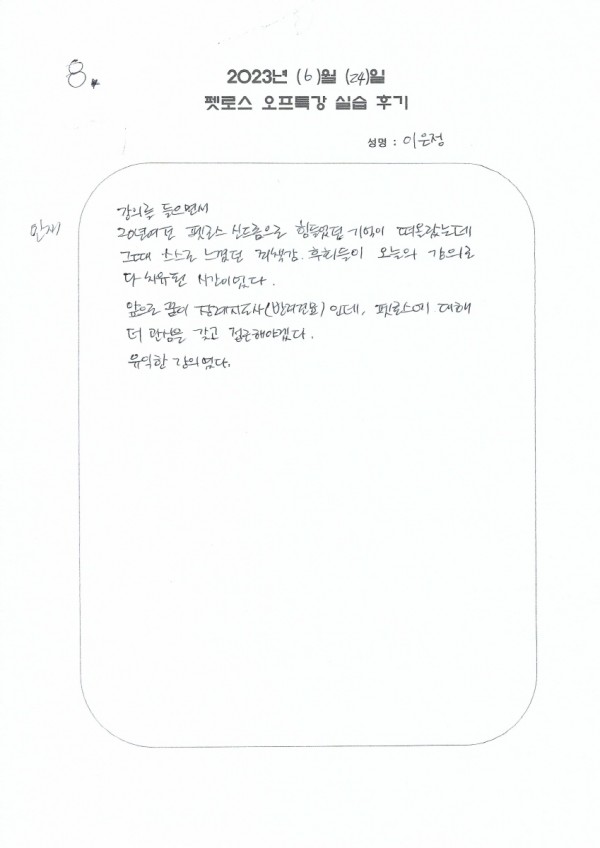 8.
2023년 (6)월 (24)일
펫로스 오프특강 실습 후기
성명 : 이은정
강의를 들으면서
20년여전 펫로스 신드롬으로 힘들었던 기억이 떠올랐는데
그때 스스로 느꼈던 죄책감. 후회들이 오늘의 강의로
다 치유된 시간이었다.
앞으로 꿈이 장례지도사(반려견묘) 인데, 펫로스에 대해
더 관심을 갖고 접근해야겠다.
유익한 강의였다.